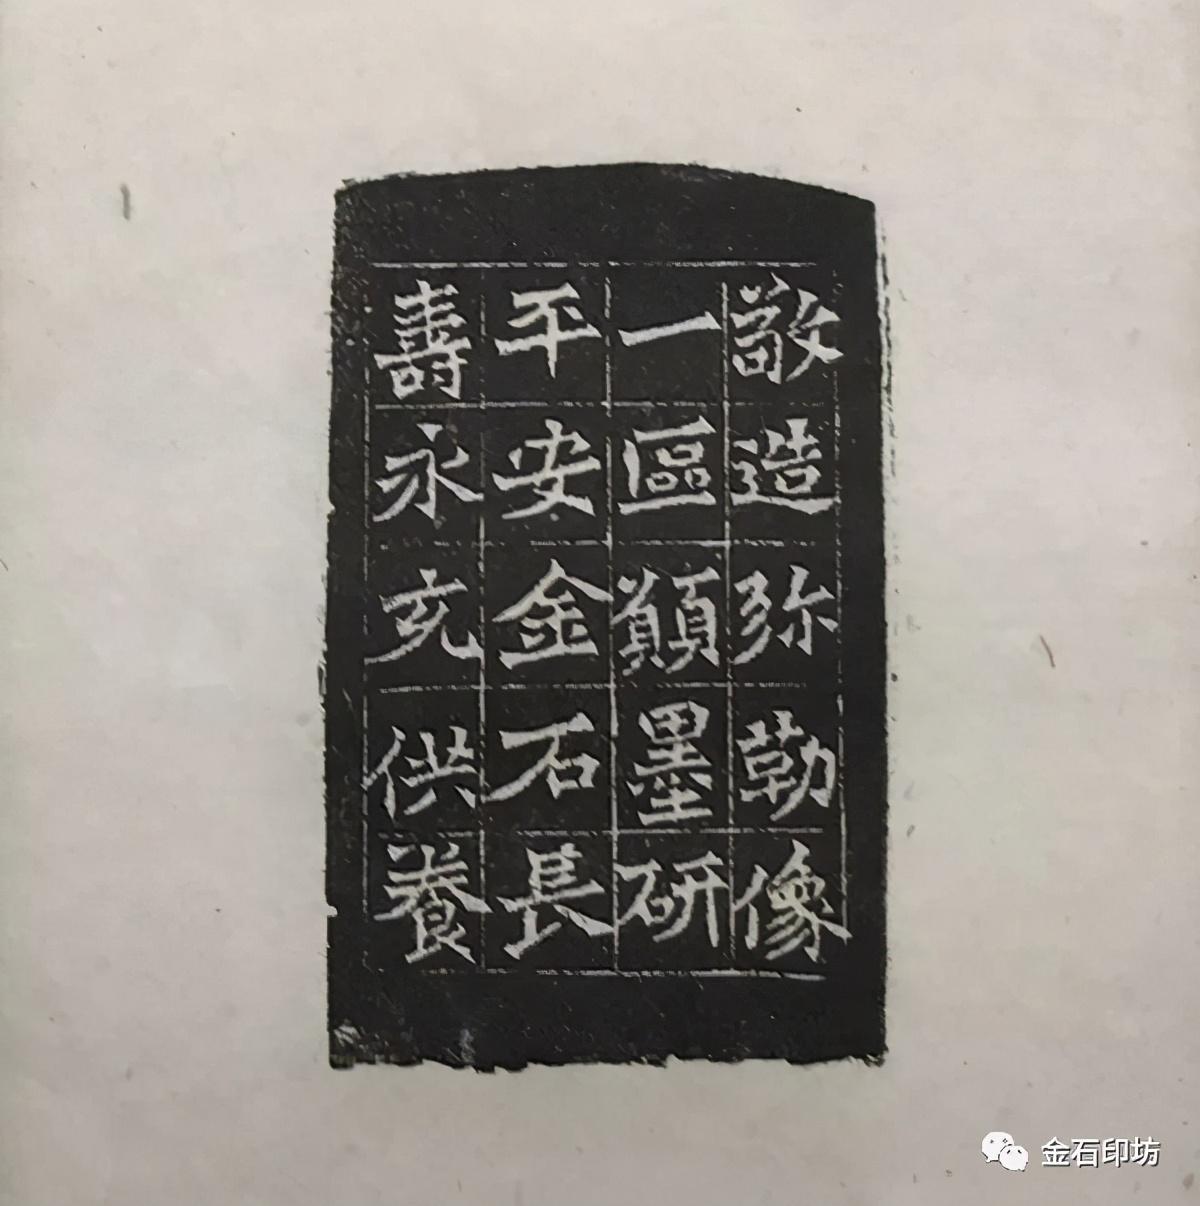 敬造弥勒像
一區願墨研
平安金石長
壽永充供養
金石印坊